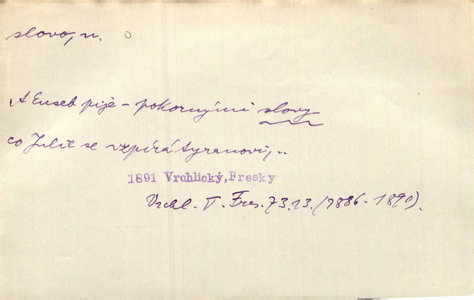 slovo, n.
A Euseb pije – pokornými slovy
co Julie se vzpírá tyranovi, ..
1891 Vrchlický, Fresky
Vrchl. T. Fres. 73.13. (1886-1890).